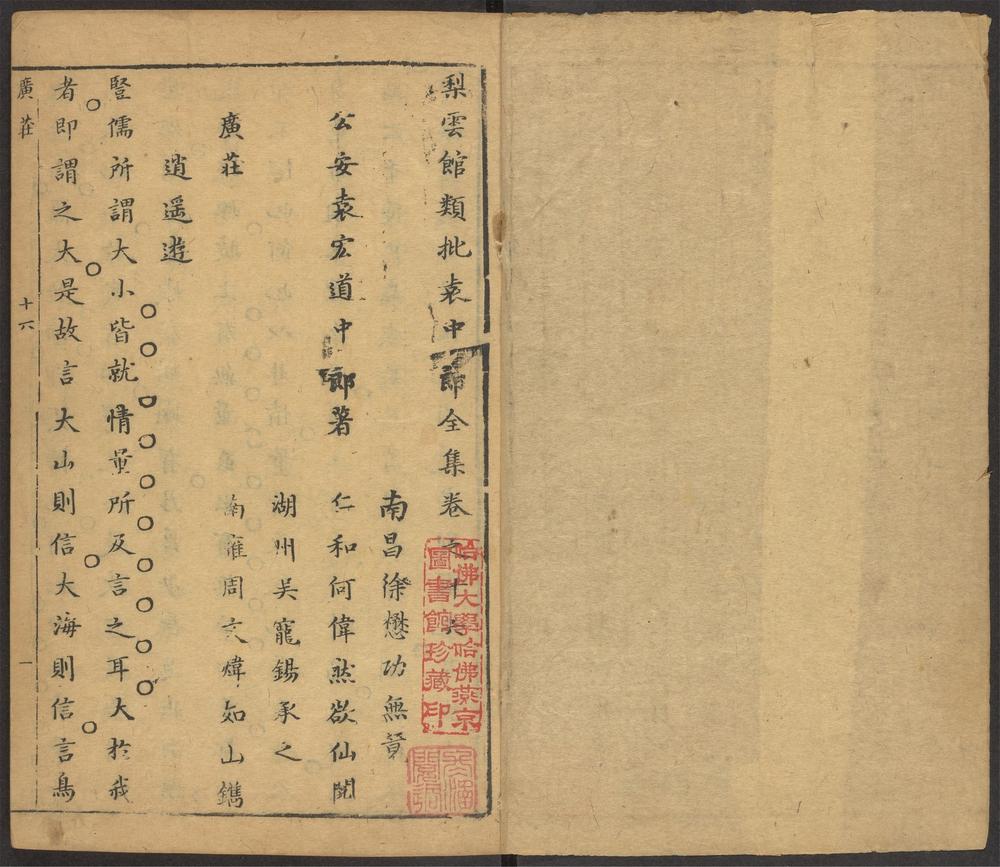 梨雲館類批袁中郎全集卷之十六
南昌徐懋功無
公安袁宏道中郎著
仁和何偉然欲仙閱
湖州吳寵錫承之
南雍周文煒如山鐫
廣莊
逍遥遊
豎儒所謂大小皆就情量所及言之耳大於我
者即謂之大是故言大山則信大海則信言鳥
廣莊
十六
一
哈佛大學哈佛燕京
圖書館珍藏印